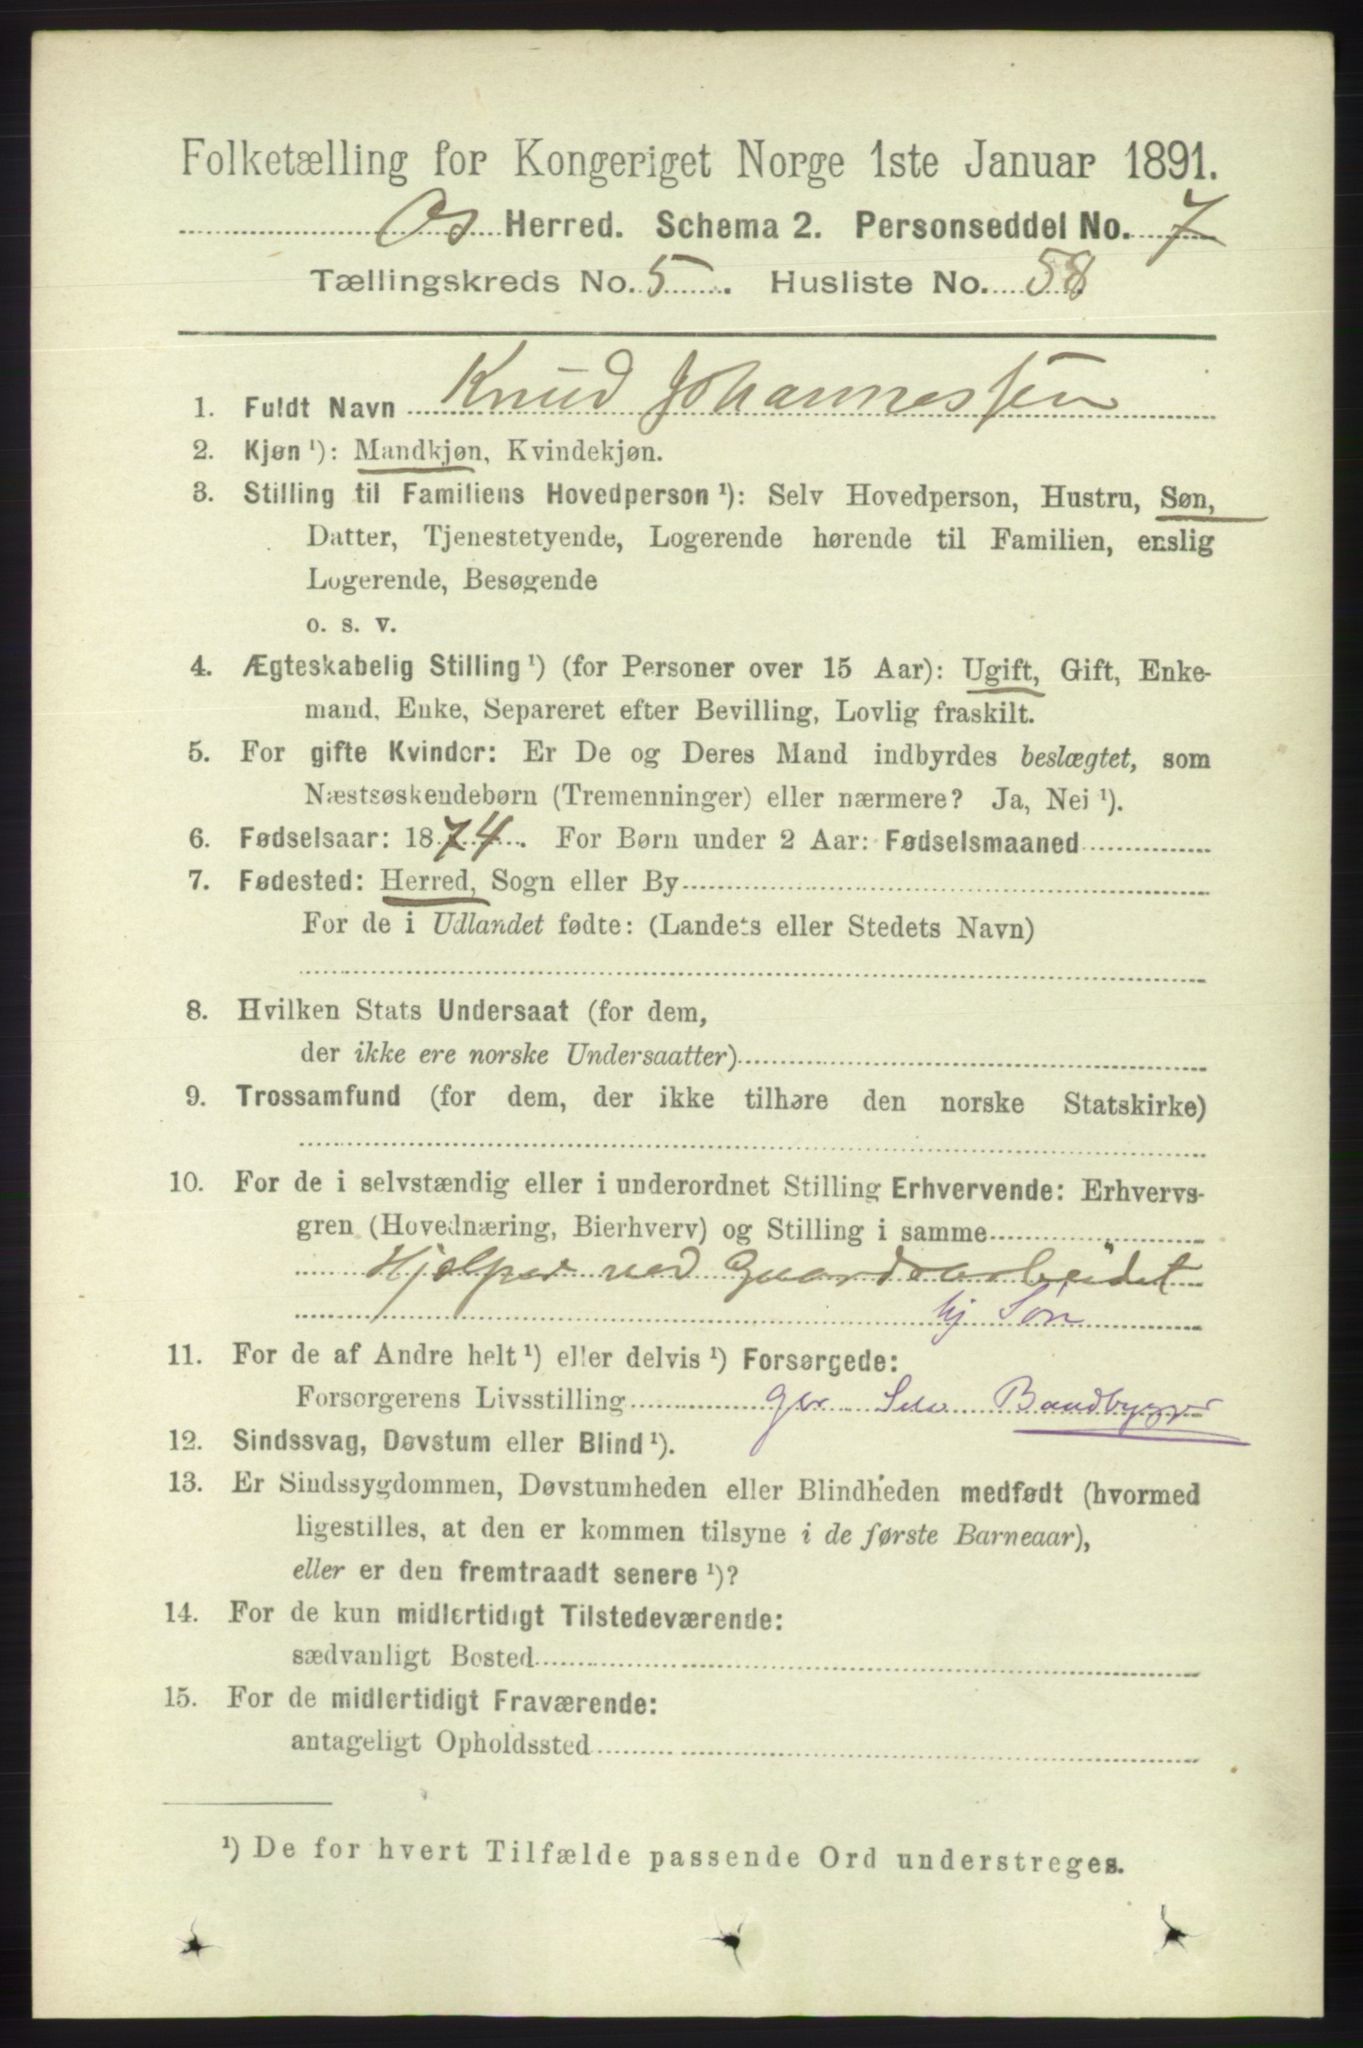 Folketælling for Kongeriget Norge 1ste Januar 1891.
Os Herred. Schema 2. Personseddel No. 7
Tællingskreds No. 5. Husliste No. 58
1. Fuldt Navn Knud Johannessen
2. Kjøn ¹): Mandkjøn, Kvindekjøn.
3. Stilling til Familiens Hovedperson ¹): Selv Hovedperson, Hustru, Søn,
Datter, Tjenestetyende, Logerende hørende til Familien, enslig
Logerende, Besøgende
o. s. v.
4. Ægteskabelig Stilling ¹) (for Personer over 15 Aar): Ugift, Gift, Enke-
mand, Enke, Separeret efter Bevilling, Lovlig fraskilt.
5. For gifte Kvinder: Er De og Deres Mand indbyrdes beslægtet, som
Næstsøskendebørn (Tremenninger) eller nærmere? Ja, Nei ¹).
6. Fødselsaar: 1874. For Børn under 2 Aar: Fødselsmaaned
7. Fødested: Herred, Sogn eller By
For de i Udlandet fødte: (Landets eller Stedets Navn)
8. Hvilken Stats Undersaat (for dem,
der ikke ere norske Undersaatter)
9. Trossamfund (for dem, der ikke tilhøre den norske Statskirke)
10. For de i selvstændig eller i underordnet Stilling Erhvervende: Erhvervs-
gren (Hovednæring, Bierhverv) og Stilling i samme
Hjelper ved Gaardsarbeidet
hj Søn
11. For de af Andre helt ¹) eller delvis ¹) Forsørgede:
Forsørgerens Livsstilling gbr Selv Baadbygger
12. Sindssvag, Døvstum eller Blind ¹).
13. Er Sindssygdommen, Døvstumheden eller Blindheden medfødt (hvormed
ligestilles, at den er kommen tilsyne i de første Barneaar),
eller er den fremtraadt senere ¹)?
14. For de kun midlertidigt Tilstedeværende:
sædvanligt Bosted
15. For de midlertidigt Fraværende:
antageligt Opholdssted
¹) De for hvert Tilfælde passende Ord understreges.